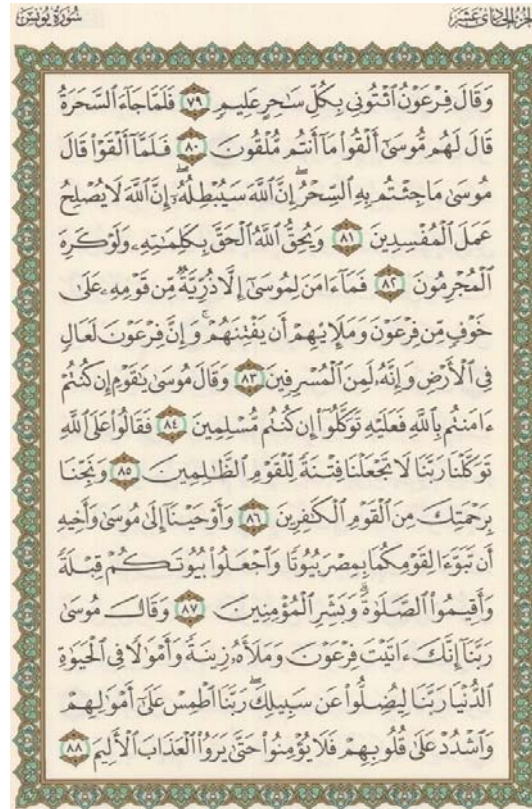 سُورَةُ يُونُسَ
الجُزْءُ الحَادِي عَشَرَ
وَقَالَ فِرْعَوْنُ ٱئْتُونِى بِكُلِّ سَٰحِرٍ عَلِيمٍ ٧٩ فَلَمَّا جَآءَ ٱلسَّحَرَةُ
قَالَ لَهُم مُّوسَىٰٓ أَلْقُوا۟ مَآ أَنتُم مُّلْقُونَ ٨٠ فَلَمَّآ أَلْقَوْا۟ قَالَ
مُوسَىٰ مَا جِئْتُم بِهِ ٱلسِّحْرُ ۖ إِنَّ ٱللَّهَ سَيُبْطِلُهُۥٓ ۖ إِنَّ ٱللَّهَ لَا يُصْلِحُ
عَمَلَ ٱلْمُفْسِدِينَ ٨١ وَيُحِقُّ ٱللَّهُ ٱلْحَقَّ بِكَلِمَٰتِهِۦ وَلَوْ كَرِهَ
ٱلْمُجْرِمُونَ ٨٢ فَمَآ ءَامَنَ لِمُوسَىٰٓ إِلَّا ذُرِّيَّةٌ مِّن قَوْمِهِۦ عَلَىٰ
خَوْفٍ مِّن فِرْعَوْنَ وَمَلَإِي۟هِمْ أَن يَفْتِنَهُمْ ۚ وَإِنَّ فِرْعَوْنَ لَعَالٍ
فِى ٱلْأَرْضِ وَإِنَّهُۥ لَمِنَ ٱلْمُسْرِفِينَ ٨٣ وَقَالَ مُوسَىٰ يَٰقَوْمِ إِن كُنتُمْ
ءَامَنتُم بِٱللَّهِ فَعَلَيْهِ تَوَكَّلُوٓا۟ إِن كُنتُم مُّسْلِمِينَ ٨٤ فَقَالُوا۟ عَلَى ٱللَّهِ
تَوَكَّلْنَا رَبَّنَا لَا تَجْعَلْنَا فِتْنَةً لِّلْقَوْمِ ٱلظَّٰلِمِينَ ٨٥ وَنَجِّنَا
بِرَحْمَتِكَ مِنَ ٱلْقَوْمِ ٱلْكَٰفِرِينَ ٨٦ وَأَوْحَيْنَآ إِلَىٰ مُوسَىٰ وَأَخِيهِ
أَن تَبَوَّءَا لِقَوْمِكُمَا بِمِصْرَ بُيُوتًا وَٱجْعَلُوا۟ بُيُوتَكُمْ قِبْلَةً
وَأَقِيمُوا۟ ٱلصَّلَوٰةَ ۗ وَبَشِّرِ ٱلْمُؤْمِنِينَ ٨٧ وَقَالَ مُوسَىٰ
رَبَّنَآ إِنَّكَ ءَاتَيْتَ فِرْعَوْنَ وَمَلَأَهُۥ زِينَةً وَأَمْوَٰلًا فِى ٱلْحَيَوٰةِ
ٱلدُّنْيَا رَبَّنَا لِيُضِلُّوا۟ عَن سَبِيلِكَ ۖ رَبَّنَا ٱطْمِسْ عَلَىٰٓ أَمْوَٰلِهِمْ
وَٱشْدُدْ عَلَىٰ قُلُوبِهِمْ فَلَا يُؤْمِنُوا۟ حَتَّىٰ يَرَوُا۟ ٱلْعَذَابَ ٱلْأَلِيمَ ٨٨